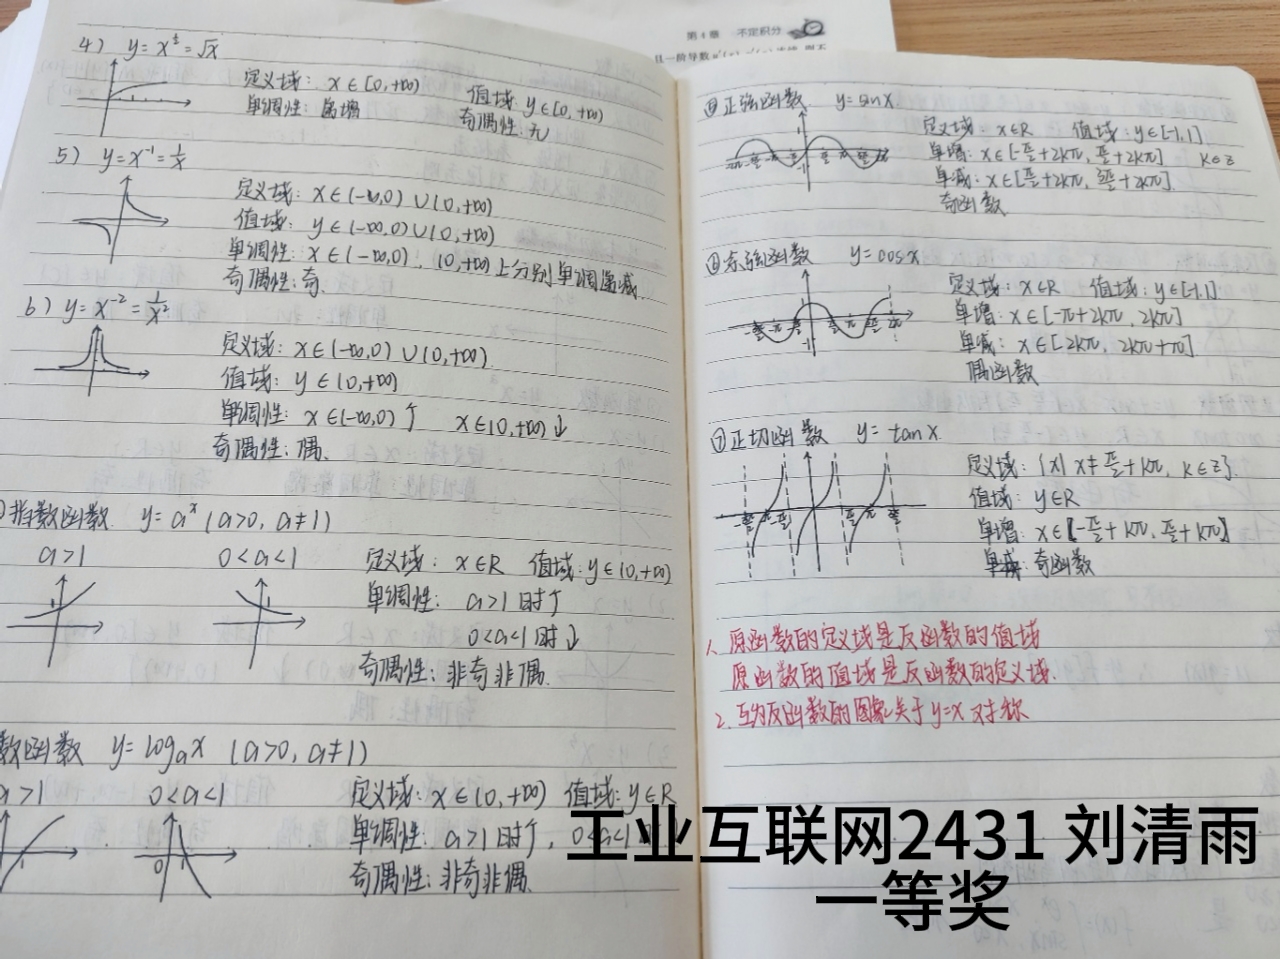 第4章 不定积分
4) y=x^½=√x
定义域: x∈[0,+∞) 值域: y∈[0,+∞)
单调性: 单增 奇偶性: 无
5) y=x⁻¹=1/x
定义域: x∈(-∞,0)∪(0,+∞)
值域: y∈(-∞,0)∪(0,+∞)
单调性: x∈(-∞,0),(0,+∞)上分别单调递减
奇偶性: 奇.
6) y=x⁻²=1/x²
定义域: x∈(-∞,0)∪(0,+∞)
值域: y∈(0,+∞)
单调性: x∈(-∞,0)↑ x∈(0,+∞)↓
奇偶性: 偶.
指数函数 y=aˣ (a>0, a≠1)
a>1 0<a<1
定义域: x∈R 值域: y∈(0,+∞)
单调性: a>1时↑
0<a<1时↓
奇偶性: 非奇非偶.
数函数 y=logₐx (a>0, a≠1)
a>1 0<a<1
定义域: x∈(0,+∞) 值域: y∈R
单调性: a>1时↑, 0<a<1
奇偶性: 非奇非偶.
正弦函数 y=sinx
定义域: x∈R 值域: y∈[-1,1]
单增: x∈[-π/2+2kπ, π/2+2kπ] k∈z
单减: x∈[π/2+2kπ, 3π/2+2kπ]
奇函数
⑥余弦函数 y=cosx
定义域: x∈R 值域: y∈[-1,1]
单增: x∈[-π+2kπ, 2kπ]
单减: x∈[2kπ, 2kπ+π]
偶函数
⑦正切函数 y=tanx
定义域: {x| x≠π/2+kπ, k∈z}.
值域: y∈R
单增: x∈(-π/2+kπ, π/2+kπ)
奇函数
1. 原函数的定义域是反函数的值域
原函数的值域是反函数的定义域.
2. 互为反函数的图象关于y=x对称
工业互联网2431 刘清雨
一等奖